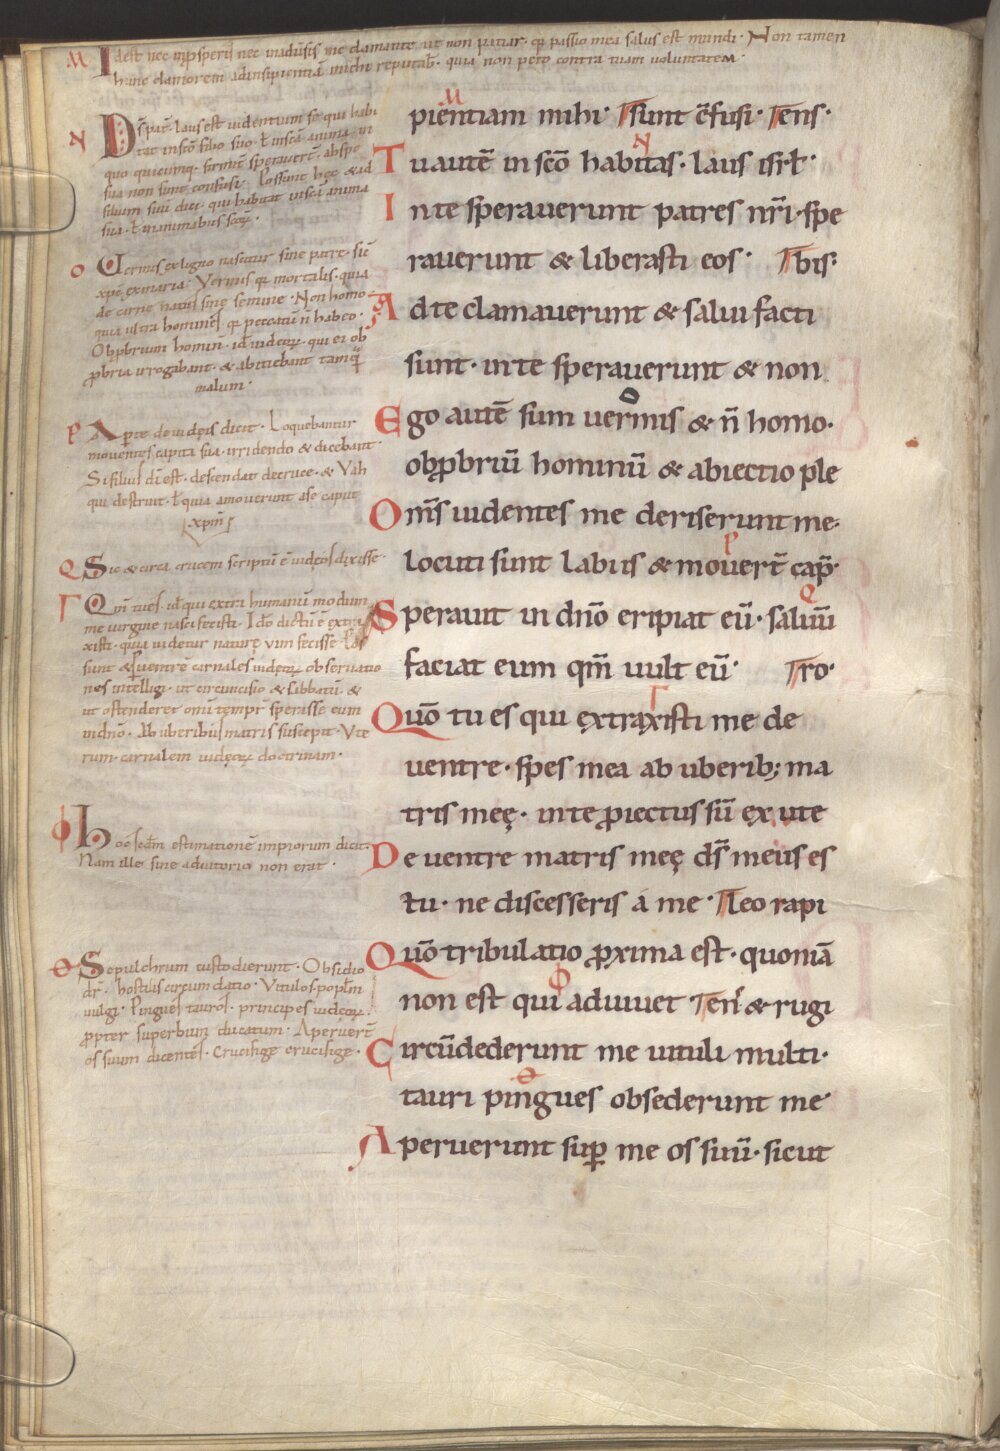 M Idest nec in prosperis nec in aduersis me clamante ut non patiar · quia passio mea salus est mundi · Non tamen
hunc clamorem ad insipientiā michi reputabis · quia non peto contra tuam voluntatem ·
N Ds pat̄ · laus est uidentium se qui habi
tat in sc̄o filio suo · ł in sc̄a anima in
quo quicumq; firmit̄ sperauer̄t · ab spe
sua non sunt confusi · Possunt hęc & ad
filium suū dici · qui habitat in sc̄a anima
sua · ł in animabus sc̄ou ·
O Vermis ex ligno nascitur sine patre · sic̄
xp̄c ex maria · Vermis q̄ mortalis · quia
de carne natus sine semine · Non homo ·
quia ultra homines q̄ peccatū n̄ habeo ·
Obprbrium homin̄ · id ē iudęou · qui ei ob
probria irrogabant · & abiciebant tamquā
malum ·
P Aperte de iudęis dicit · Loquebantur
mouentes capita sua · irridendo & dicebant ·
Si filius di est · descendat de cruce · & Vah
qui destruit · ł quia amouerunt a se caput
xpm̄
Q Sic & circa crucem scriptū ē iudęos dixisse ·
Γ Qm̄ tu es · id ē qui extra humanū modum
me uirgine nasci fecisti · Ideo dictū ē extra
xisti · quia uidetur naturę uim fecisse
sunt & p uentrē carnales iudęou obseruatio
nes intelligi · ut circumcisio & sabbatū · &
ut ostenderet omī tempr sperasse eum
in dn̄o · Ab uberibus matris suscepit · Vte
rum · carnalem iudęou doctrinam ·
ϕ Hoc secdm estimationē impiorum dicit ·
Nam ille sine adiutorio non erat ·
Θ Sepulchrum custodierunt · Obsidio
dr̄ · hostilis circumdatio · Vitulos · popl̄m
uulgi · Pingues tauros · principes iudęou ·
ppter superbum ducatum · Aperuer̄t
os suum dicentes · Crucifige crucifige ·
pientiam mihi · Tsunt c̄fusi · Tens ·
Tu autē in sc̄o habitas · laus isrł ·
In te sperauerunt patres nr̄i · spe
rauerunt & liberasti eos · Tbis ·
Ad te clamauerunt & salui facti
sunt · in te sperauerunt & non
Ego autē sum uermis & n̄ homo ·
obprbriū hominū & abiectio ple
Om̄s uidentes me deriserunt me ·
locuti sunt labiis & mouer̄t cap̄ ·
Sperauit in dn̄o eripiat eū · saluū
faciat eum qm̄ uult eū · Tro ·
Quō tu es qui ęxtraxisti me de
uentre · spes mea ab uberib; ma
tris meę · in te proiectus sū ex ute
De uentre matris meę ds̄ meus es
tu · ne discesseris á me · Tleo rapi
Quō tribulatio proxima est · quoniā
non est qui adiuuet Ten̄ & rugi
Circūdederunt me uituli multi ·
tauri pingues obsederunt me ·
Aperuerunt sup me os suū · sicut